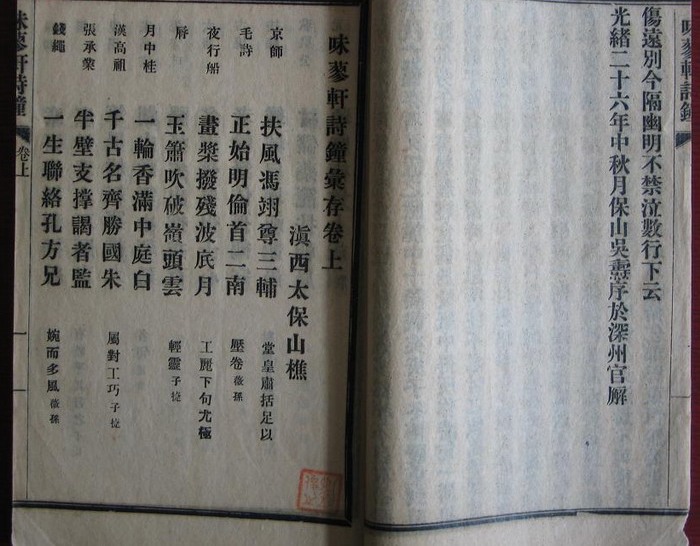 味蓼軒詩鐘
傷遠別今隔幽明不禁泣數行下云
光緒二十六年中秋月保山吳燾序於深州官廨
味蓼軒詩鐘彙存卷上
滇西太保山樵
京師 扶風馮翊尊三輔 堂皇肅括足以
毛詩 正始明倫首二南 壓卷 薇孫
夜行船 畫槳撥殘波底月 工麗下句尤極
脣 玉簫吹破嶺頭雲 輕靈 子
月中桂 一輪香滿中庭白
漢高祖 千古名齊勝國朱 屬對工巧 子
張承業 半壁支撐謁者監
錢繩 一生聯絡孔方兄 婉而多風 薇孫
味蓼軒詩鐘 卷上